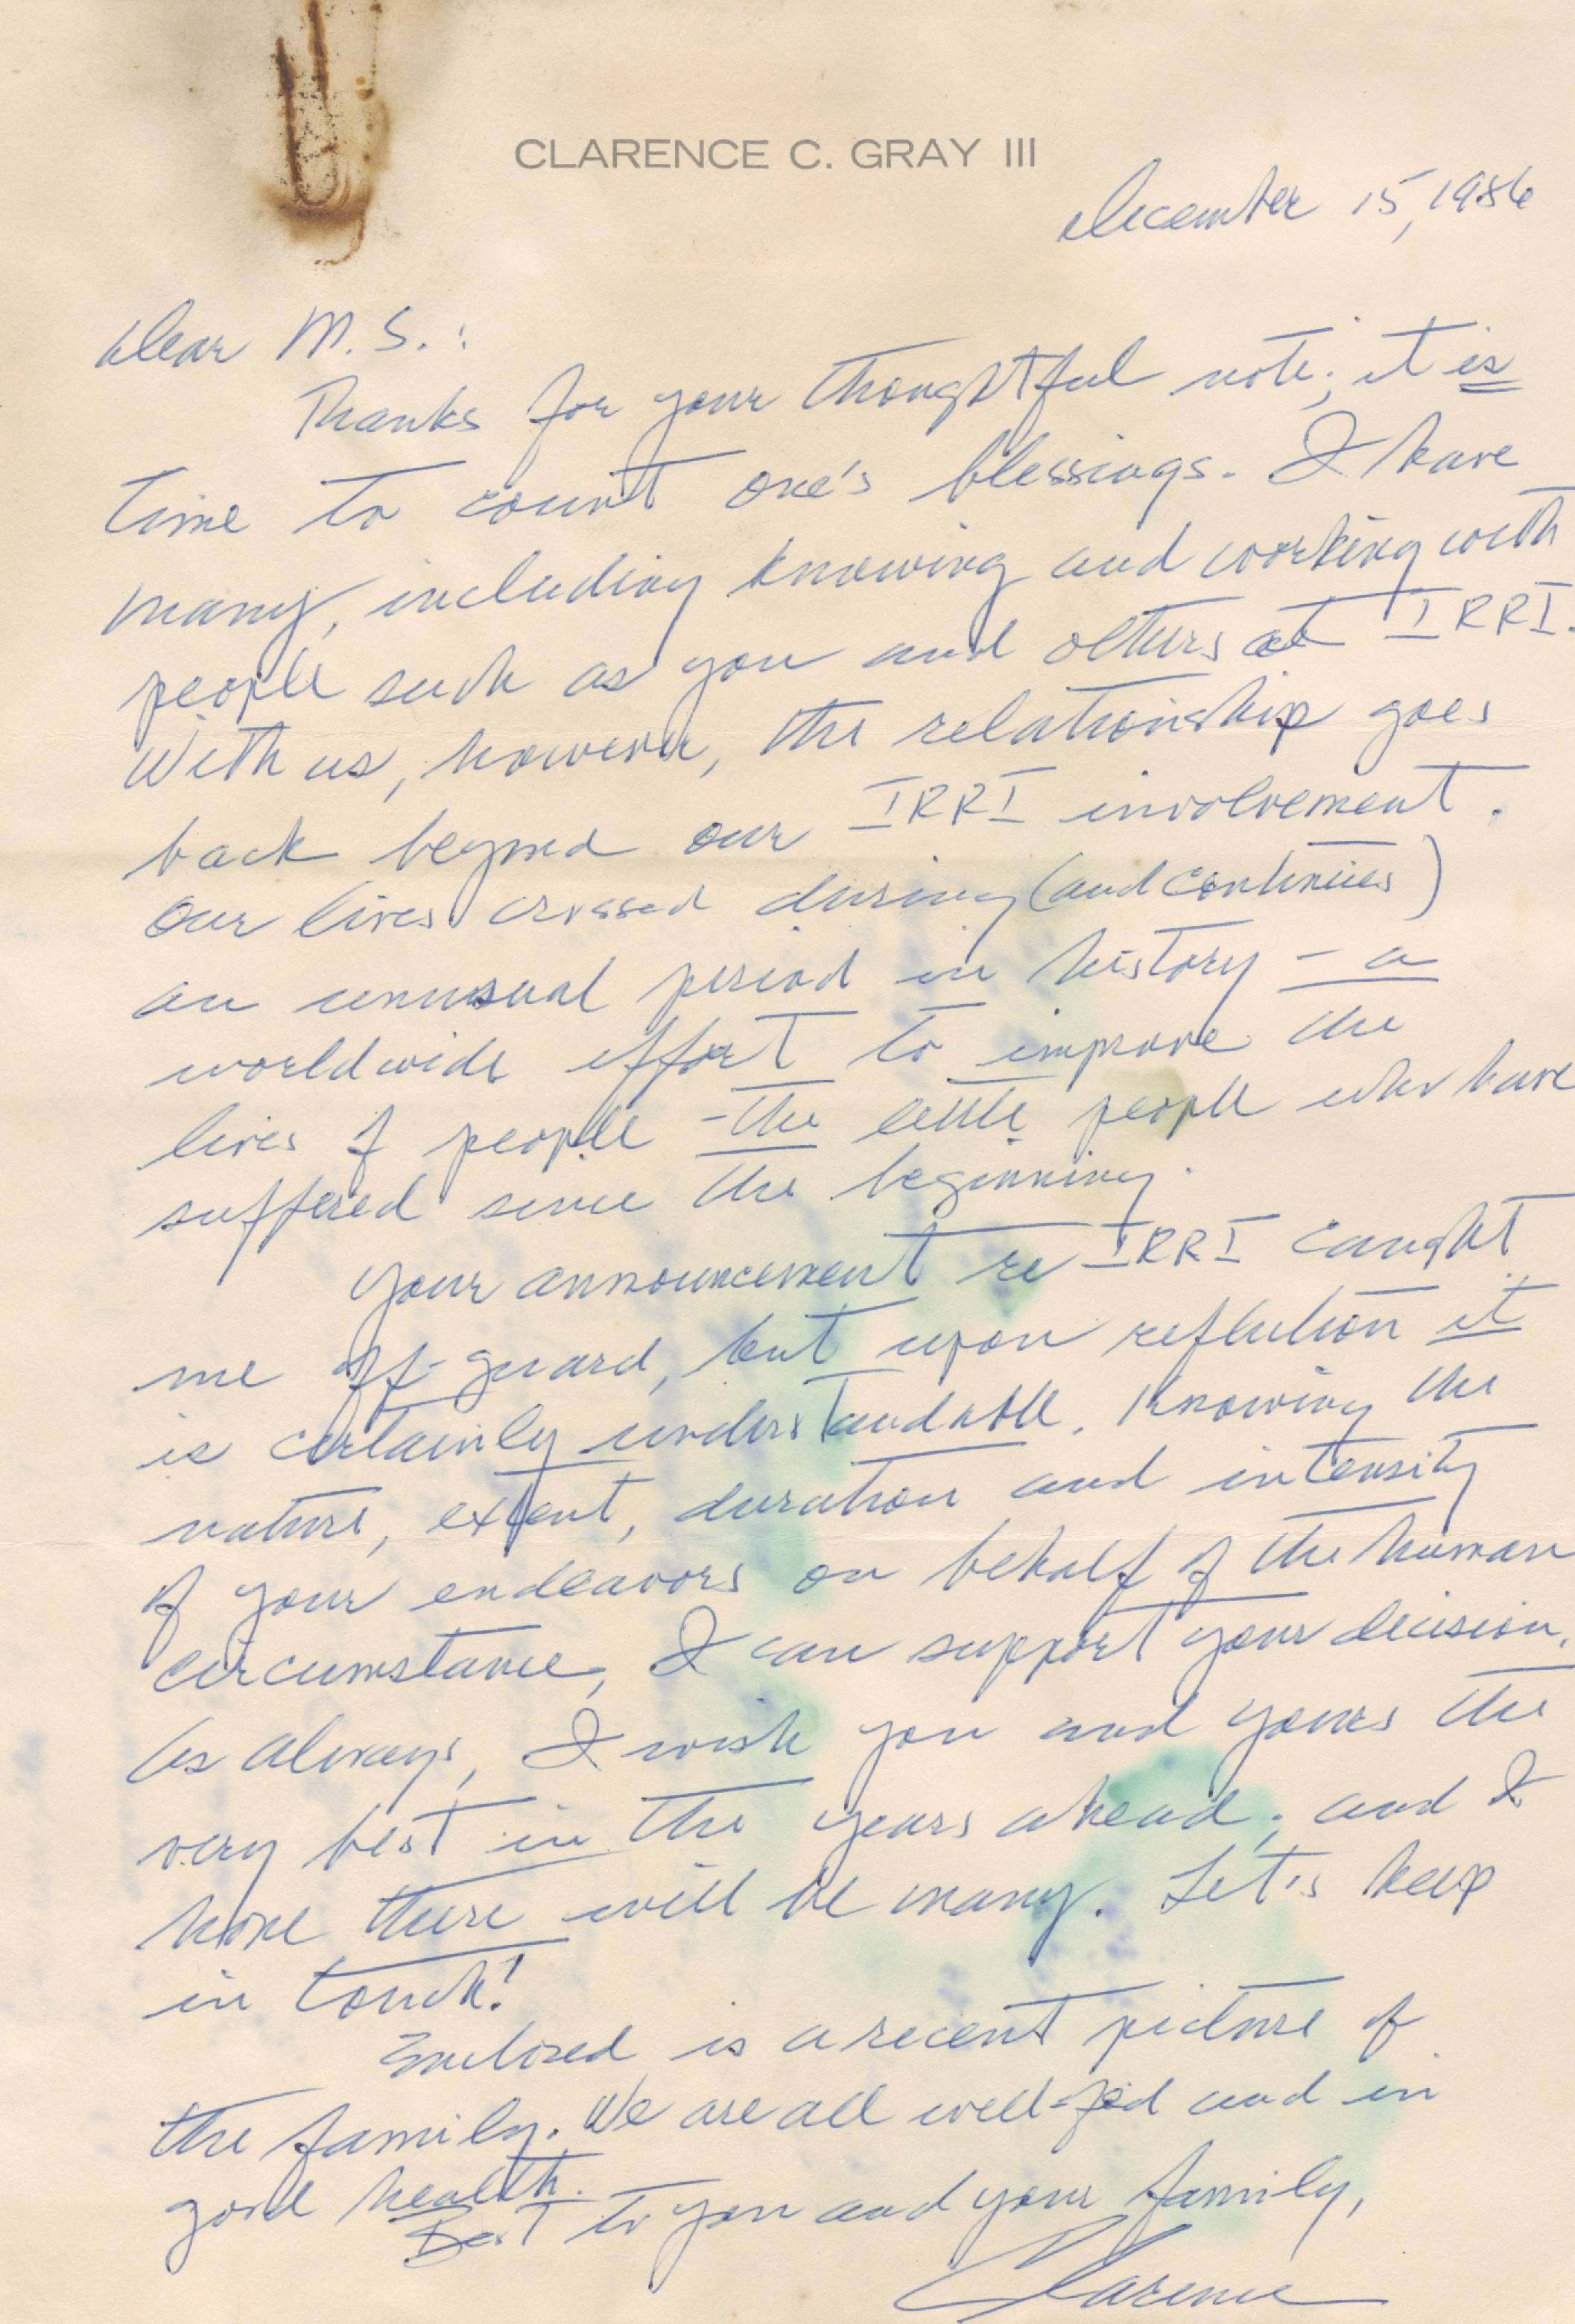 CLARENCE C. GRAY III
December 15, 1986
Dear M.S.:
Thanks for your thoughtful note; it is
time to count one's blessings. I have
many, including knowing and working with
people such as you and others at IRRI.
With us, however, the relationship goes
back beyond our IRRI involvement.
Our lives crossed during (and continues)
an unusual period in history - a
worldwide effort to improve the
lives of people - the little people who have
suffered since the beginning.
Your announcement re IRRI caught
me off-guard, but upon reflection it
is certainly understandable. Knowing the
nature, extent, duration and intensity
of your endeavors on behalf of the human
circumstance, I can support your decision.
As always, I wish you and yours the
very best in the years ahead; and I
hope there will be many. Let's keep
in touch!
Enclosed is a recent picture of
the family. We are all well-fed and in
good health.
Best to you and your family,
Clarence